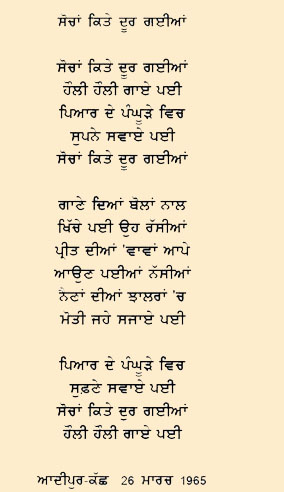 ਸੋਚਾਂ ਕਿਤੇ ਦੂਰ ਗਈਆਂ
ਸੋਚਾਂ ਕਿਤੇ ਦੂਰ ਗਈਆਂ
ਹੌਲੀ ਹੌਲੀ ਗਾਏ ਪਈ
ਪਿਆਰ ਦੇ ਪੰਘੂੜੇ ਵਿਚ
ਸੁਪਨੇ ਸਵਾਏ ਪਈ
ਸੋਚਾਂ ਕਿਤੇ ਦੂਰ ਗਈਆਂ
ਗਾਣੇ ਦਿਆਂ ਬੋਲਾਂ ਨਾਲ
ਖਿੱਚੇ ਪਈ ਉਹ ਰੱਸੀਆਂ
ਪ੍ਰੀਤ ਦੀਆਂ 'ਵਾਵਾਂ ਆਪੇ
ਆਉਣ ਪਈਆਂ ਨੱਸੀਆਂ
ਨੈਣਾਂ ਦੀਆਂ ਝਾਲਰਾਂ 'ਚ
ਮੋਤੀ ਜਹੇ ਸਜਾਏ ਪਈ
ਪਿਆਰ ਦੇ ਪੰਘੂੜੇ ਵਿਚ
ਸੁਫ਼ਣੇ ਸਵਾਏ ਪਈ
ਸੋਚਾਂ ਕਿਤੇ ਦੂਰ ਗਈਆਂ
ਹੌਲੀ ਹੌਲੀ ਗਾਏ ਪਈ
ਆਦੀਪੁਰ-ਕੱਛ 26 ਮਾਰਚ 1965